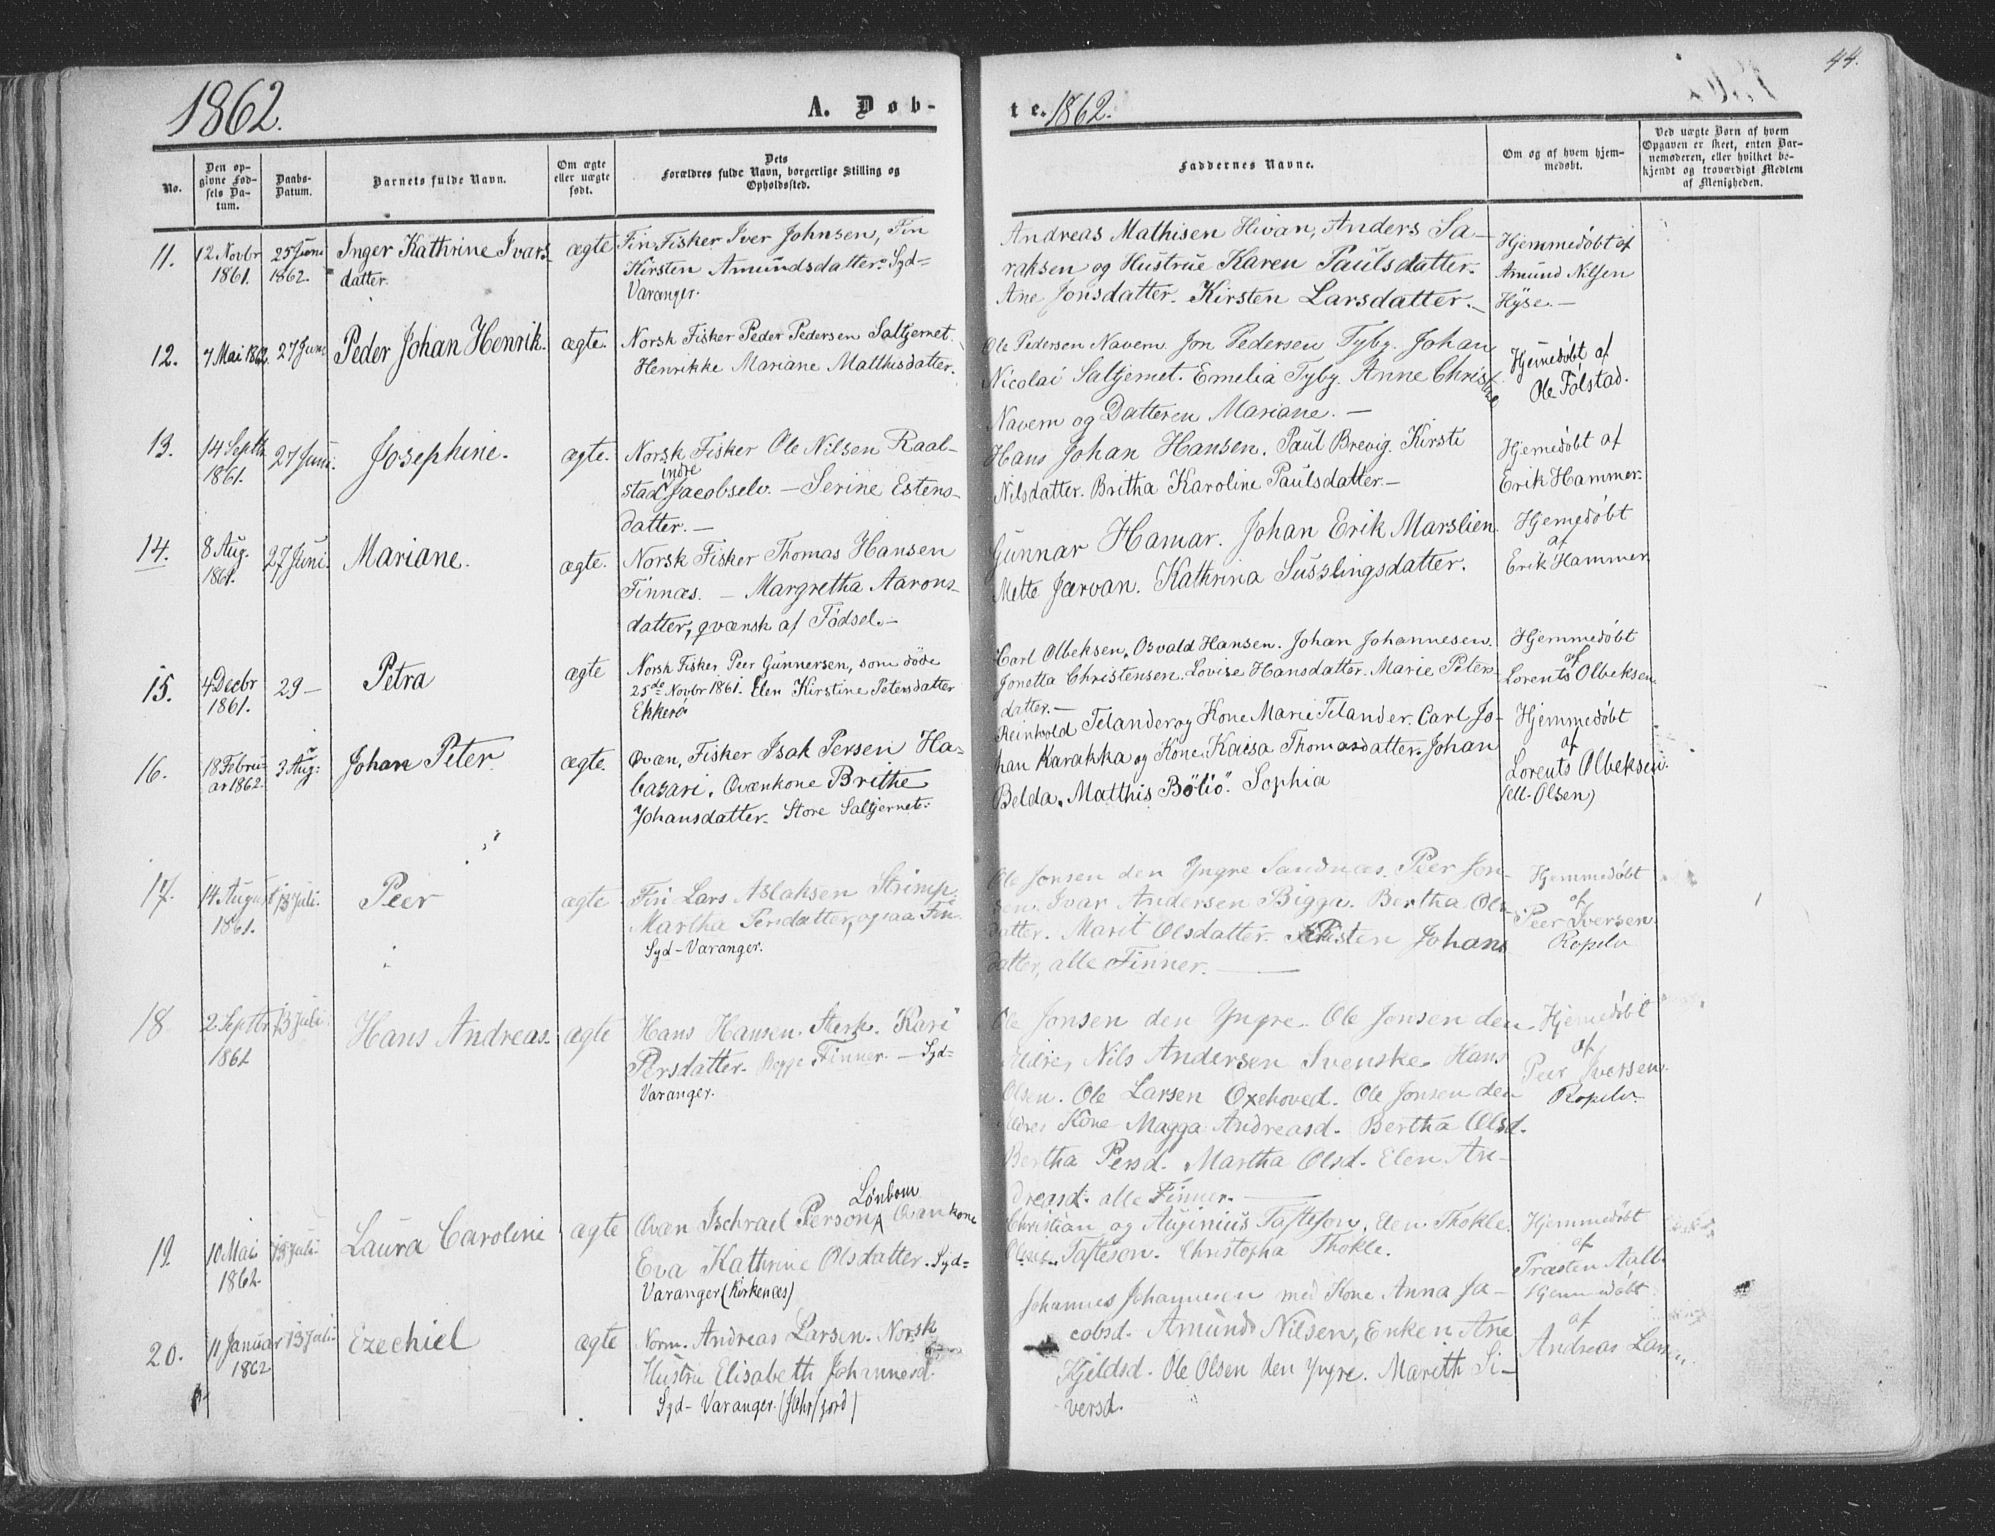 1862. A. Døb-
No.
Den op-
givne Fød-
sels Da-
tum.
Daabs-
Datum.
Barnets fulde Navn.
Om ægte
eller uægte
født.
Dets
Forældres fulde Navn, borgerlige Stilling og
Opholdssted.
11. 12 Novbr 25 Juni Inger Kathrine Ivars- ægte Fin, Fisker Iver Johnsen, Fin
1861. 1862. datter. Kirsten Amundsdatter. Syd-
Varanger.
12. 7 Mai 1862. 27 Juni Peder Johan Henrik. ægte. Norsk Fisker Peder Pedersen Saltjernet.
Henrikke Mariane Matthisdatter.
13. 14 Septb. 27 Juni. Josephine. ægte. Norsk Fisker Ole Nilsen Raal-
1861. indre
stad Jacobselv. - Serine Estens-
datter. -
14. 8 Aug. 27 Juni. Mariane. ægte. Norsk Fisker Thomas Hansen
1861. Finnæs. - Margretha Aarons-
datter, qvænsk af Fødsel. -
15. 4 Decbr 29 - Petra ægte Norsk Fisker Peer Gunnersen, som døde
1861. 25de Novbr 1861. Elen Kirstine Petersdatter
Ekkerø
16. 18 Febru- 3 Aug: Johan Peter ægte. Qvæn, Fisker Isak Persen Ha-
ar 1862. basari. Qvænkone Brithe
Johansdatter. Store Saltjernet.
17. 14 August 13 Juli. Peer ægte Fin Lars Aslaksen Strimp.
1861. Martha Persdatter, ogsaa Fin.
Syd-Varanger.
18 2 Septbr 13 Juli. Hans Andreas. ægte Hans Hansen. Sterk. Kari
1861 Persdatter. Begge Finner. - Syd-
Varanger.
Lønbom
19. 10 Mai 13 Juli Laura Caroline ægte Qvæn Ischrael Person Qvænkone
1862. Eva Kathrine Olsdatter. Syd-
Varanger (Kirkenæs)
20. 11 Januar 13 Juli Ezechiel ægte Norm. Andreas Larsen. Norsk
1862 Hustru Elisabeth Johannesd.
Syd-Varanger. (Jahrfjord)
te. 1862. 44.
Faddernes Navne.
Om og af hvem hjem-
medøbt.
Ved uægte Børn af hvem
Opgaven er skeet, enten Bar-
nemoderen, eller hvilket be-
kjendt og troværdigt Medlem
af Menigheden.
Andreas Mathisen Hivan, Anders Sa-
raksen og Hustrue Karen Paulsdatter.
Ane Jonsdatter. Kirsten Larsdatter. -
Hjemmedøbt af
Amund Nilsen
Hyse. -
Ole Pedersen Navern Jon Pedersen Tyby. Johan
Nicolai Saltjernet. Emelia Tyby. Anne Christine
Navern og Datteren Mariane. -
Hjemedøbt af
Ole Følstad.
Hans Johan Hansen. Paul Brevig. Kirsti
Nilsdatter. Britha Karoline Paulsdatter. -
Hjemedøbt af
Erik Hammer.
Gunnar Hamar. Johan Erik Marslien
Mette Jærvan. Kathrina Susslingsdatter.
Hjemedøbt
af
Erik Hammer
Carl Olbeksen. Osvald Hansen. Johan Johannesen.
Jonetta Christensen. Lovise Hansdatter. Marie Peters-
datter. -
Hjemmedøbt
af
Lorents Olbeksen.
Reinhold Telander og Kone Marie Telander. Carl Jo-
han Karakka og Kone Kaisa Thomasdatter. Johan
Belda. Matthis Böliö. Sophia
Hjemmedøbt
af
Lorents Olbeksen.
(ell. Olsen)
Ole Jonsen den Yngre Sandnæs. Peer Jon-
sen. Ivar Andersen Bigga. Bertha Ols-
datter. Marit Olsdatter. Kirsten Johans
datter, alle Finner. -
Hjemmedøbt
af
Peer Iversen
Ropelv
Ole Jonsen den Yngre. Ole Jonsen den
Ældre, Nils Andersen Svenske. Hans
Olsen. Ole Larsen Oxehoved. Ole Jonsen den
Ældres Kone Magga Andreasd. Bertha Olsd.
Bertha Persd. Martha Olsd. Elen An-
dreasd. alle Finner. -
Hjemedøbt
af
Peer Iversen.
Ropelv.
Christian og Auginius Tafteson, Elen Thokle.
Tafteson. Christopha Thokle.
Hjemmedøbt
af
Træsten Aalb.
Johannes Johannesen med Kone Anna Ja-
cobsd. Amund Nilsen, Enken Ane
Kjeldsd. Ole Olsen den Yngre. Marith Si-
versd.
Hjemmedøbt
af
Andreas Larsen.